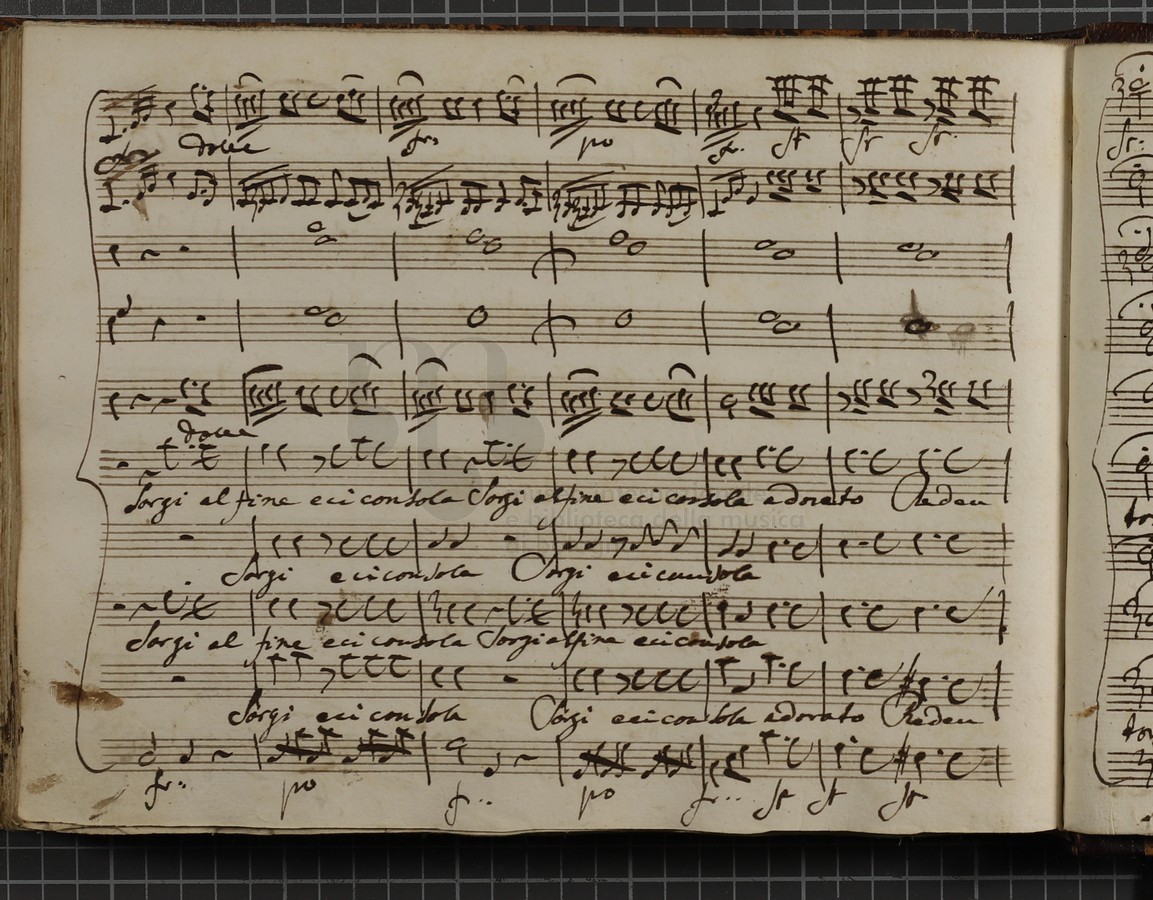 dolce
fr: po fr: sf sf sf:
dolce
Sorgi al fine e ci consola Sorgi al fine e ci consola adorato Reden
Sorgi e ci consola Sorgi e ci consola
Sorgi al fine e ci consola Sorgi al fine e ci consola
Sorgi e ci consola Sorgi e ci consola adorato Reden
fr: po f: po fr: sf sf sf